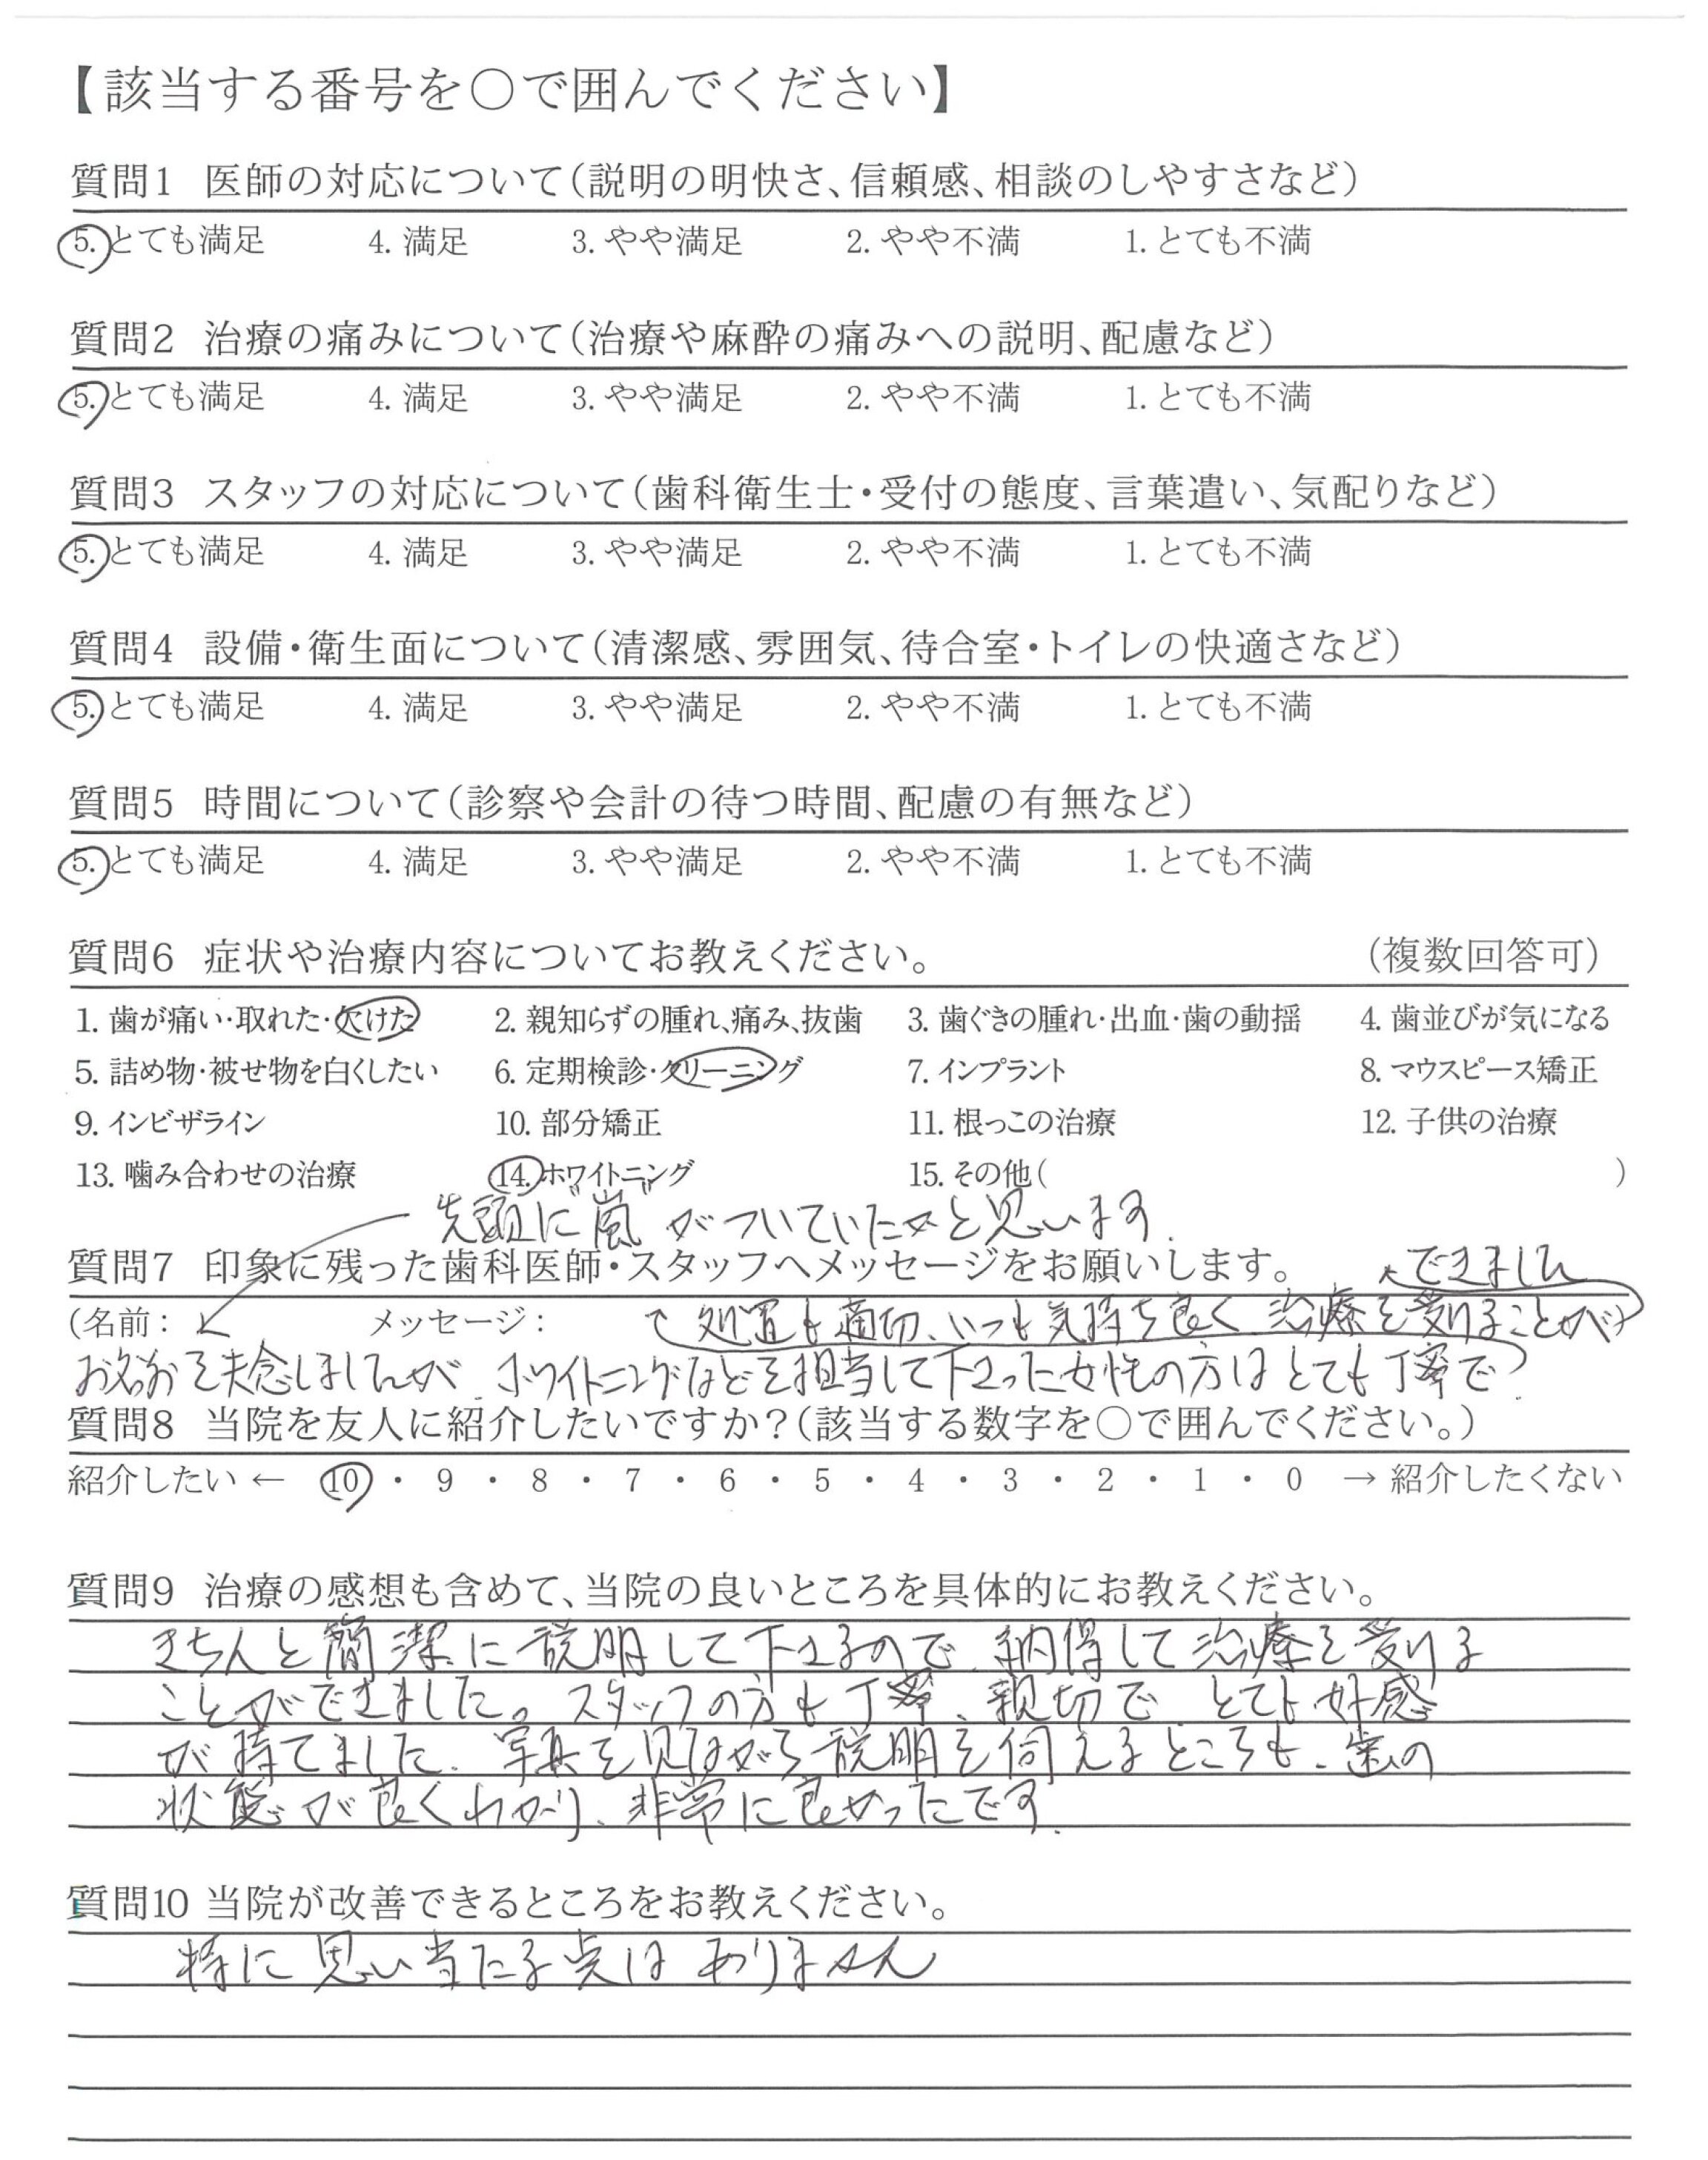 【該当する番号を○で囲んでください】
質問1 医師の対応について（説明の明快さ、信頼感、相談のしやすさなど）
5. とても満足 4. 満足 3. やや満足 2. やや不満 1. とても不満
質問2 治療の痛みについて（治療や麻酔の痛みへの説明、配慮など）
5. とても満足 4. 満足 3. やや満足 2. やや不満 1. とても不満
質問3 スタッフの対応について（歯科衛生士・受付の態度、言葉遣い、気配りなど）
5. とても満足 4. 満足 3. やや満足 2. やや不満 1. とても不満
質問4 設備・衛生面について（清潔感、雰囲気、待合室・トイレの快適さなど）
5. とても満足 4. 満足 3. やや満足 2. やや不満 1. とても不満
質問5 時間について（診察や会計の待つ時間、配慮の有無など）
5. とても満足 4. 満足 3. やや満足 2. やや不満 1. とても不満
質問6 症状や治療内容についてお教えください。 （複数回答可）
1. 歯が痛い・取れた・欠けた 2. 親知らずの腫れ、痛み、抜歯 3. 歯ぐきの腫れ・出血・歯の動揺 4. 歯並びが気になる
5. 詰め物・被せ物を白くしたい 6. 定期検診・クリーニング 7. インプラント 8. マウスピース矯正
9. インビザライン 10. 部分矯正 11. 根っこの治療 12. 子供の治療
13. 噛み合わせの治療 14. ホワイトニング 15. その他（ ）
先頭に"嵐"がついていたかと思います。
質問7 印象に残った歯科医師・スタッフへメッセージをお願いします。
（名前： メッセージ：
お名前を失念しましたが、ホワイトニングなどを担当して下さった女性の方はとても丁寧で
処置も適切、いつも気持ち良く治療を受けることが
できました
質問8 当院を友人に紹介したいですか？（該当する数字を○で囲んでください。）
紹介したい ← 10 ・ 9 ・ 8 ・ 7 ・ 6 ・ 5 ・ 4 ・ 3 ・ 2 ・ 1 ・ 0 → 紹介したくない
質問9 治療の感想も含めて、当院の良いところを具体的にお教えください。
きちんと簡潔に説明して下さるので、納得して治療を受ける
ことができました。スタッフの方も丁寧、親切でとても好感
が持てました。写真を見ながら説明を伺えるところも、歯の
状態が良くわかり、非常に良かったです。
質問10 当院が改善できるところをお教えください。
特に思い当たる点はありません